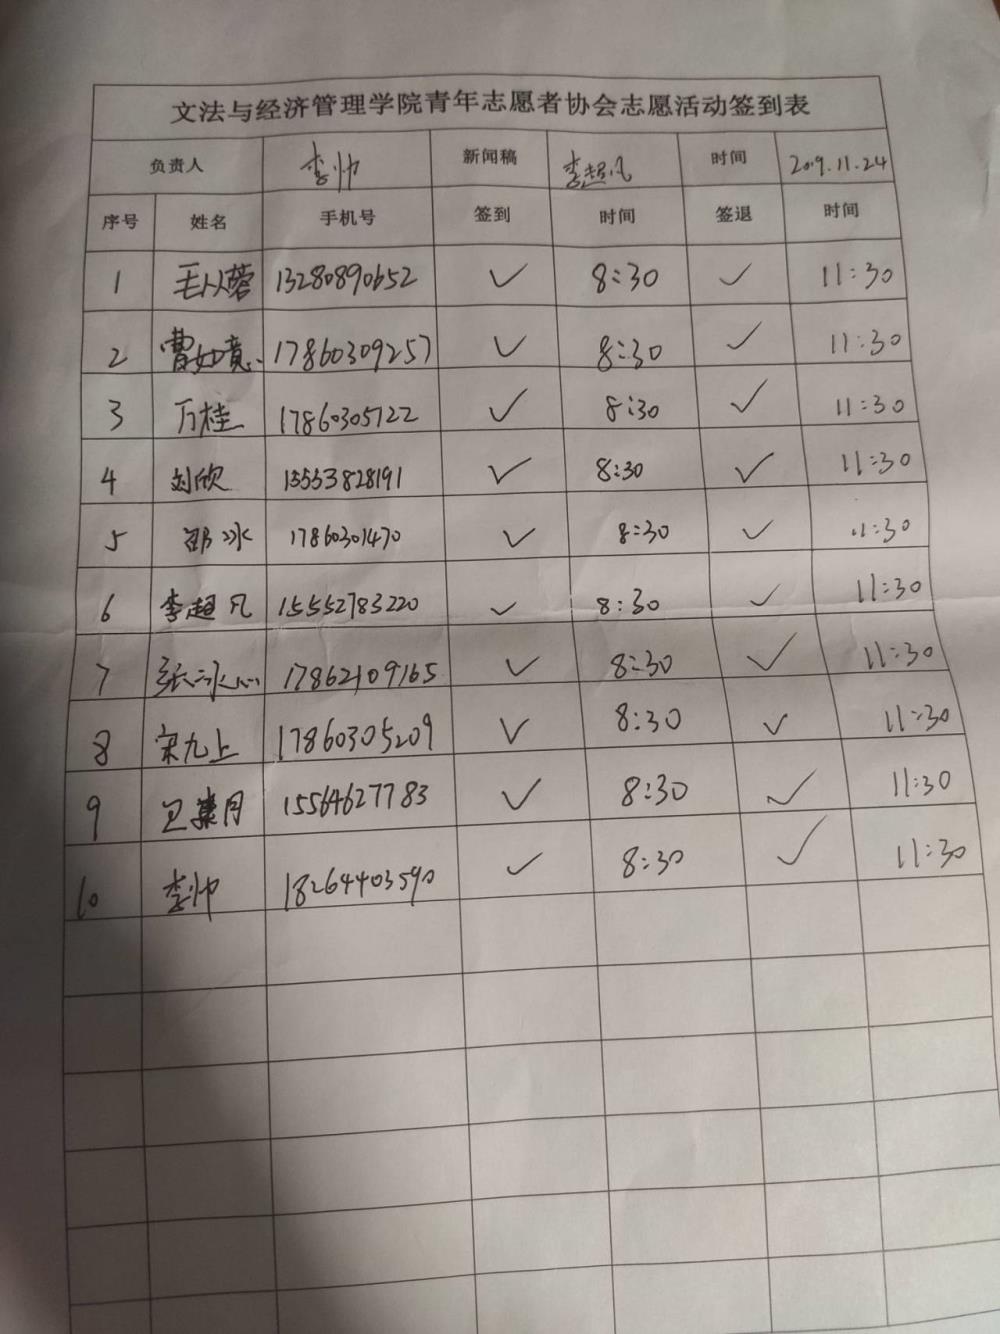 文法与经济管理学院青年志愿者协会志愿活动签到表
负责人 李帅 新闻稿 李超凡 时间 2019.11.24
序号 姓名 手机号 签到 时间 签退 时间
1 毛从蓉 13280890652 ✓ 8:30 ✓ 11:30
2 曹如意 17860309257 ✓ 8:30 ✓ 11:30
3 万桂 17860305722 ✓ 8:30 ✓ 11:30
4 刘欣 15553828191 ✓ 8:30 ✓ 11:30
5 邵冰 17860301470 ✓ 8:30 ✓ 11:30
6 李超凡 15552783220 ✓ 8:30 ✓ 11:30
7 张冰心 17862109165 ✓ 8:30 ✓ 11:30
8 宋九上 17860305209 ✓ 8:30 ✓ 11:30
9 15564627783 ✓ 8:30 ✓ 11:30
10 李帅 18264403590 ✓ 8:30 ✓ 11:30